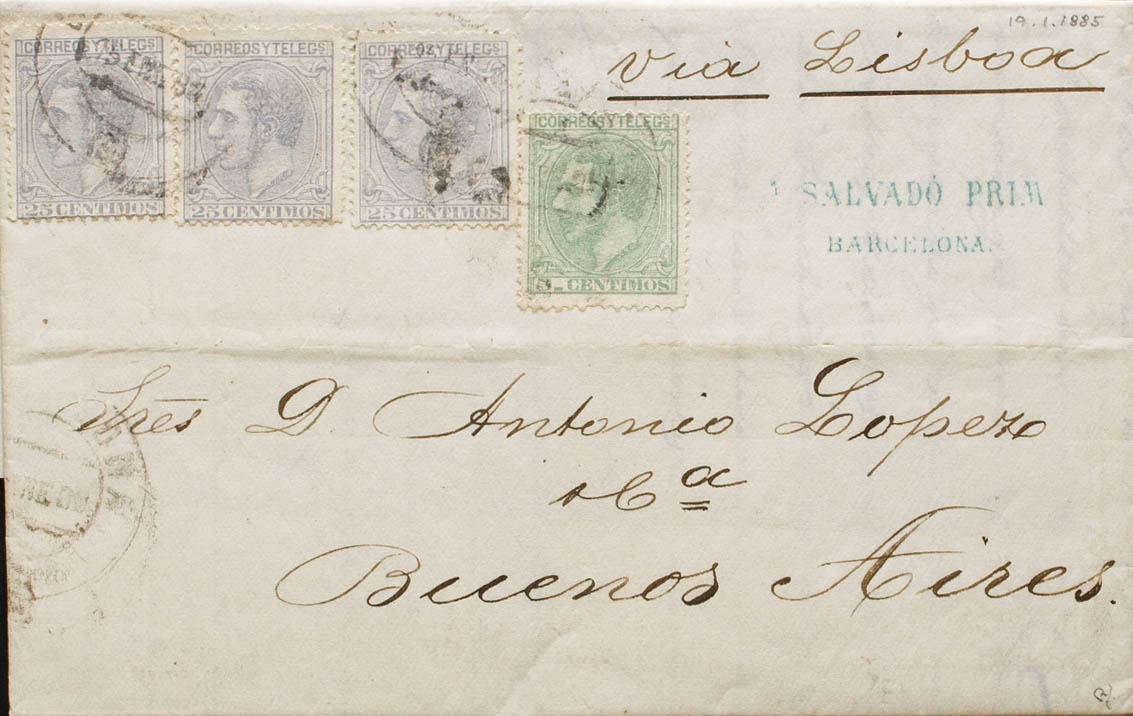 19.1.1885
via Lisboa
CORREOS Y TELEGS
25 CENTIMOS
CORREOS Y TELEGS
25 CENTIMOS
CORREOS Y TELEGS
25 CENTIMOS
CORREOS Y TELEGS
5 CENTIMOS
SALVADÓ PRIM
BARCELONA.
Sres D. Antonio Lopez
y Cª
Buenos Aires.